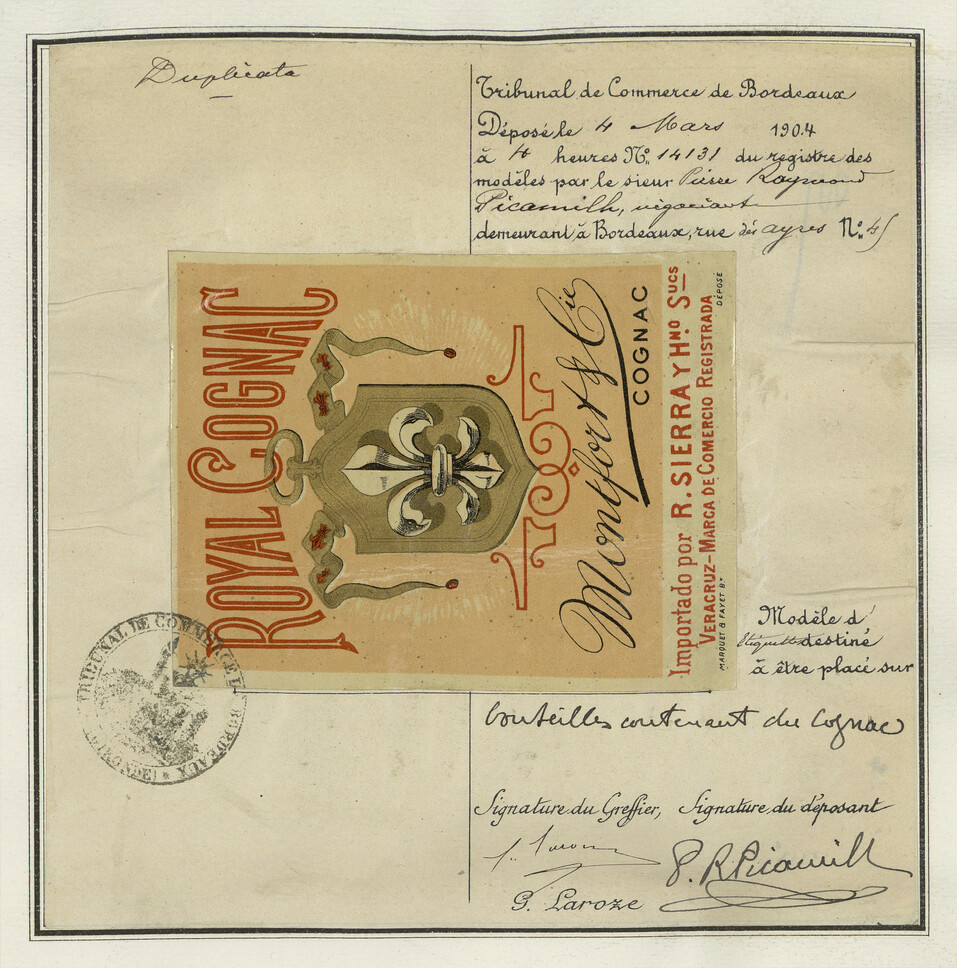 Duplicata
Tribunal de Commerce de Bordeaux
Déposé le 4 Mars 1904
à 4 heures N° 14131 du registre des
modèles par le sieur Pierre Raymond
Picamilh, négociant
demeurant à Bordeaux, rue des ayres N° 45
ROYAL COGNAC
Montfort & Cie
COGNAC
Importado por R. SIERRA Y HNO SUCS
VERACRUZ-MARCA DE COMERCIO REGISTRADA
DÉPOSÉ
MARQUET & FAYET Bx
Modèle d'
Etiquette destiné
à être placé sur
bouteilles contenant du Cognac
TRIBUNAL DE COMMERCE DE BORDEAUX
Signature du Greffier, Signature du déposant
P. R. Picamilh
G. Laroze